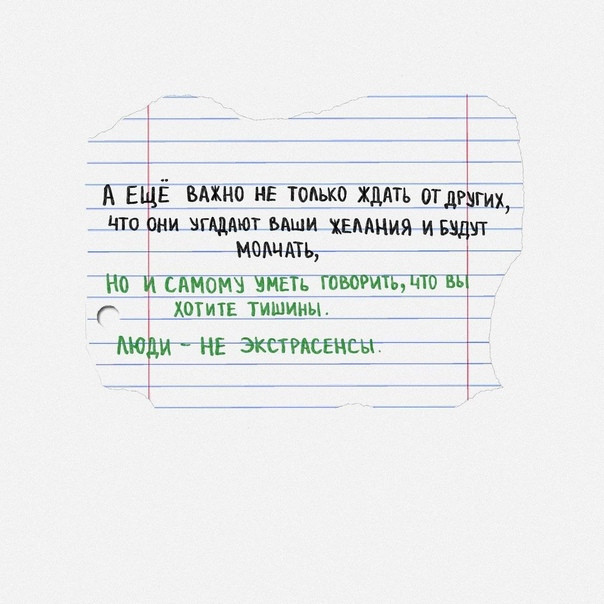 А ЕЩЁ ВАЖНО НЕ ТОЛЬКО ЖДАТЬ ОТ ДРУГИХ,
ЧТО ОНИ УГАДАЮТ ВАШИ ЖЕЛАНИЯ И БУДУТ
МОЛЧАТЬ,
НО И САМОМУ УМЕТЬ ГОВОРИТЬ, ЧТО ВЫ
ХОТИТЕ ТИШИНЫ.
ЛЮДИ - НЕ ЭКСТРАСЕНСЫ.